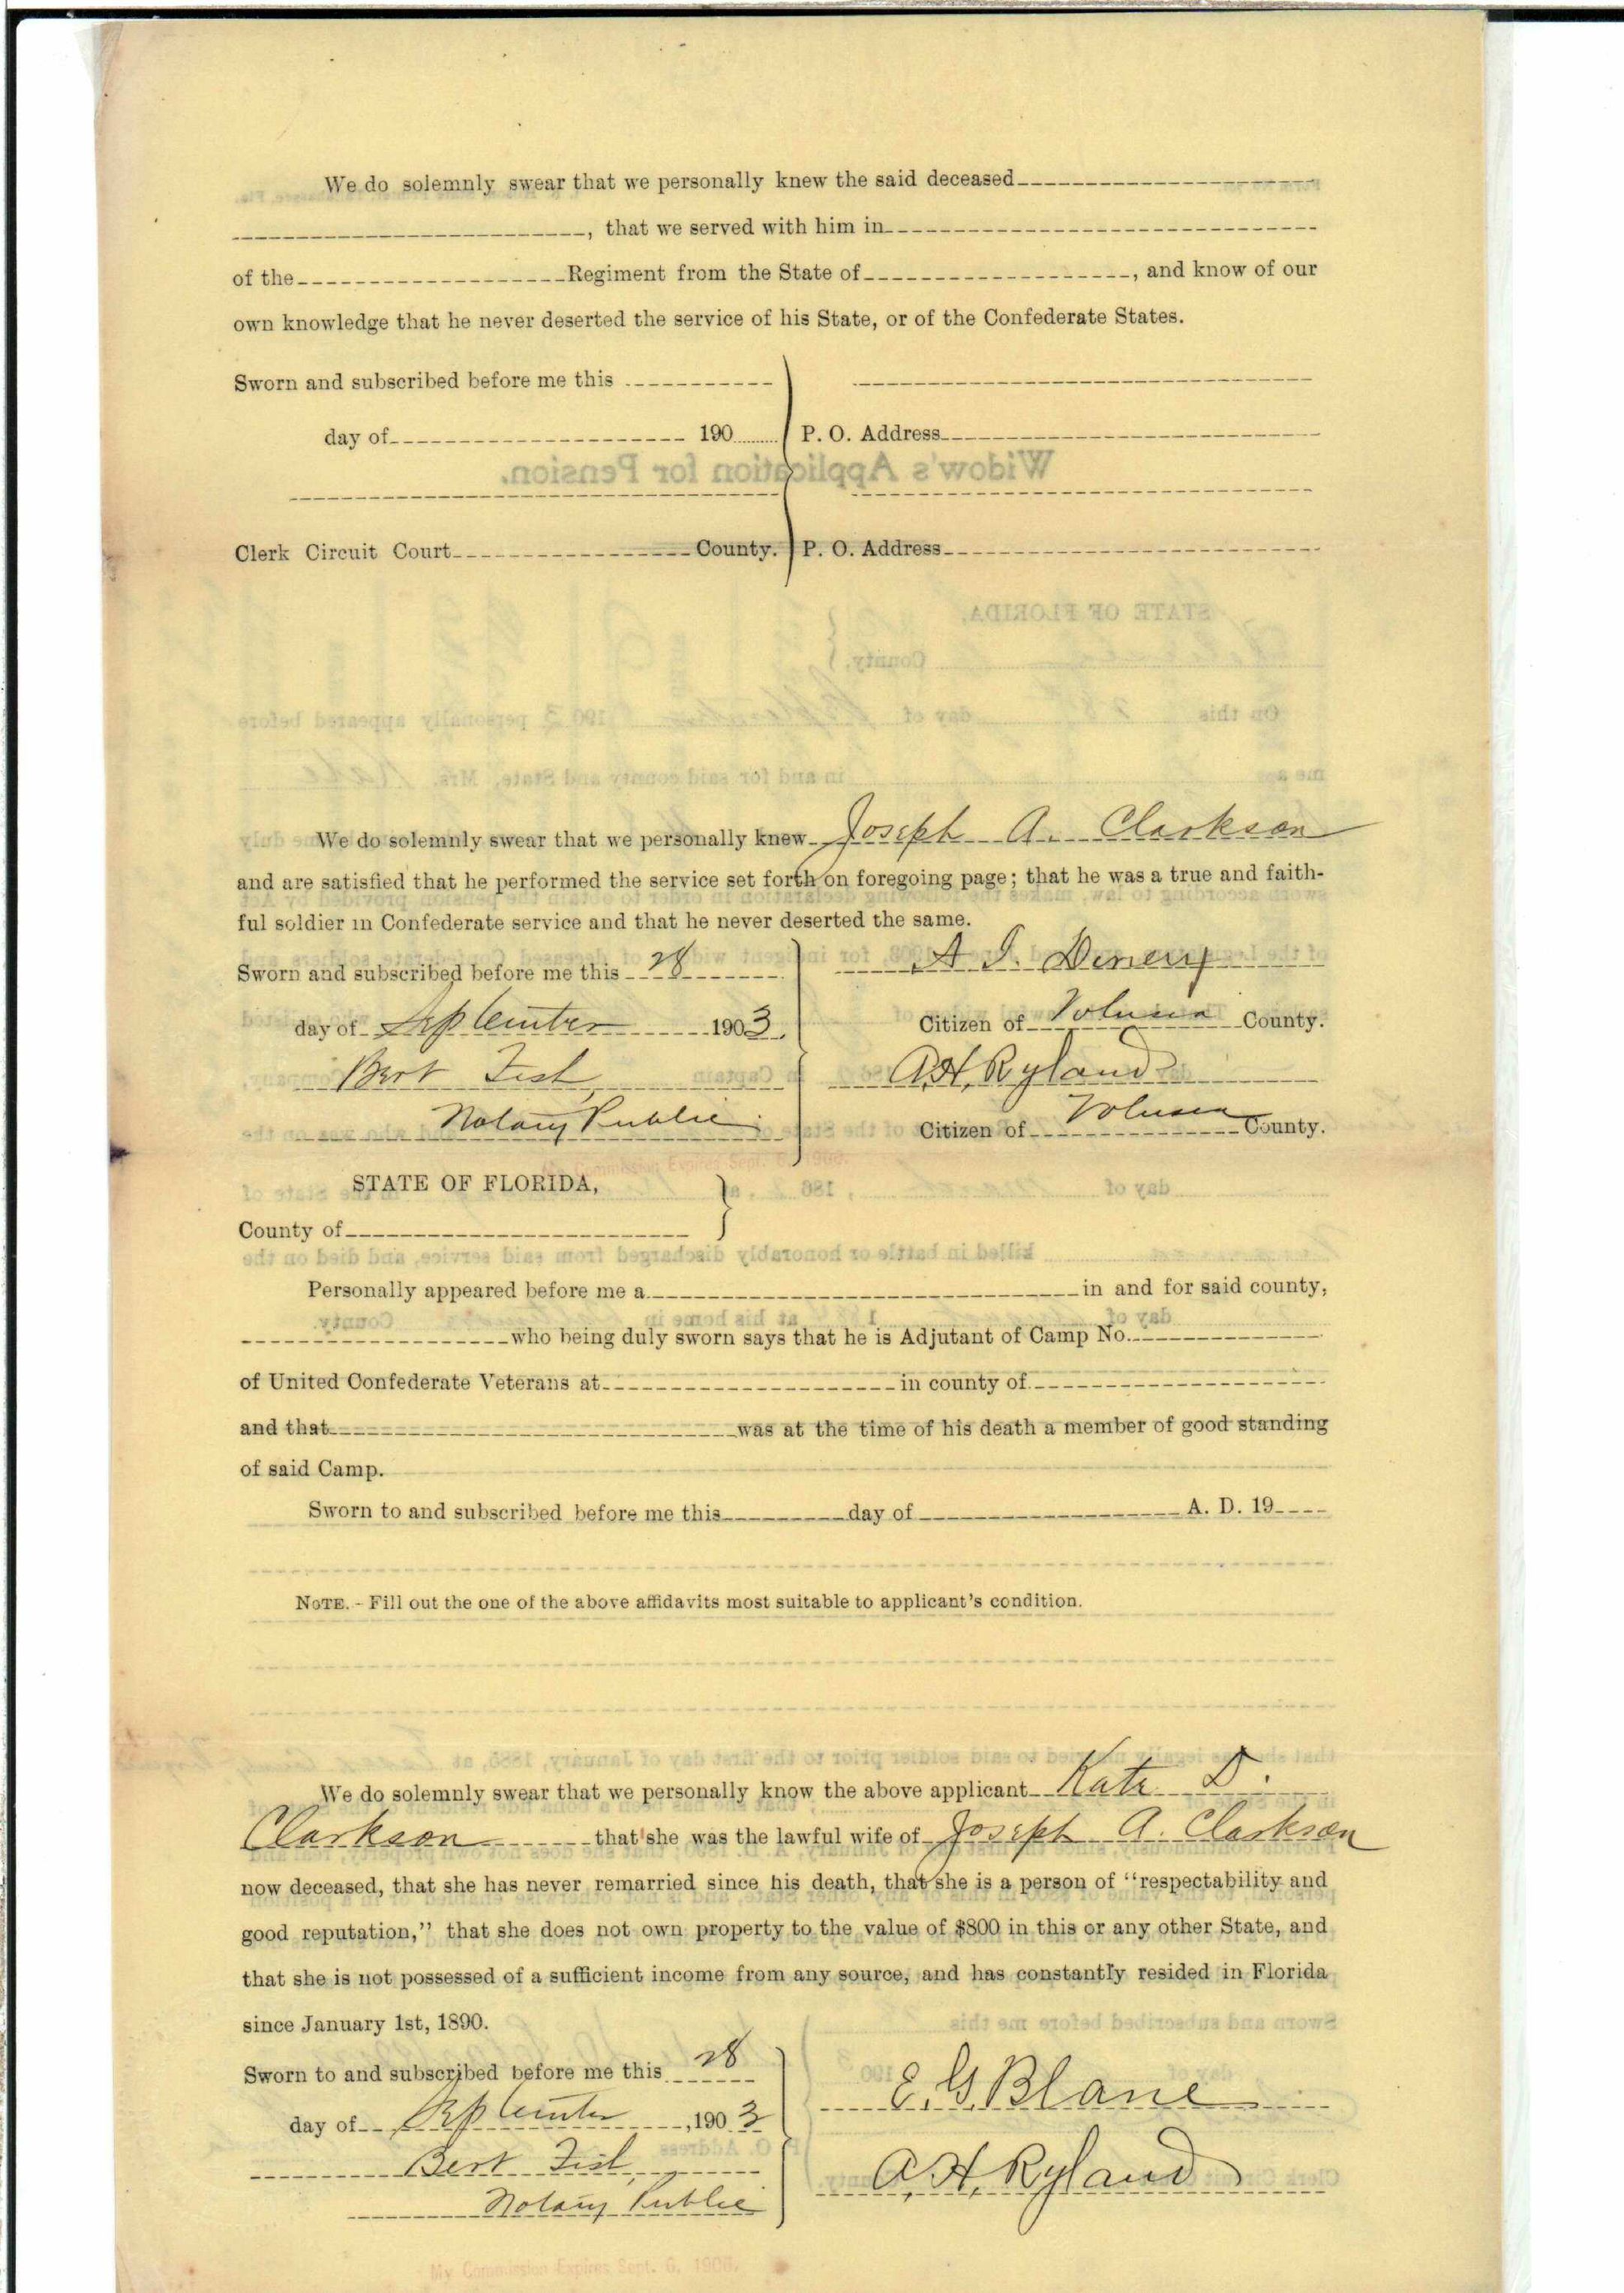 We do solemnly swear that we personally knew the said deceased
, that we served with him in
of the Regiment from the State of , and know of our
own knowledge that he never deserted the service of his State, or of the Confederate States.
Sworn and subscribed before me this
day of 190 P. O. Address
Widow's Application for Pension.
Clerk Circuit Court County. P. O. Address
STATE OF FLORIDA,
County.
On this 28 day of September 1903 personally appeared before
me a in and for said county and State, Mrs. Kate
We do solemnly swear that we personally knew Joseph A. Clarkson
and are satisfied that he performed the service set forth on foregoing page; that he was a true and faith-
ful soldier in Confederate service and that he never deserted the same.
Sworn and subscribed before me this 28
day of September 1903.
Bert Fish,
Notary Public.
A
Citizen of Volusia County.
A. H. Ryland
Citizen of Volusia County.
My Commission Expires Sept. 6, 1906.
STATE OF FLORIDA,
County of
killed in battle or honorably discharged from said service, and died on the
Personally appeared before me a in and for said county,
who being duly sworn says that he is Adjutant of Camp No.
of United Confederate Veterans at in county of
and that was at the time of his death a member of good standing
of said Camp.
Sworn to and subscribed before me this day of A. D. 19
NOTE. - Fill out the one of the above affidavits most suitable to applicant's condition.
We do solemnly swear that we personally know the above applicant Kate D.
Clarkson that she was the lawful wife of Joseph A. Clarkson
now deceased, that she has never remarried since his death, that she is a person of "respectability and
good reputation," that she does not own property to the value of $800 in this or any other State, and
that she is not possessed of a sufficient income from any source, and has constantly resided in Florida
since January 1st, 1890.
Sworn to and subscribed before me this 28
day of September, 1903
Bert Fish,
Notary Public
E. G. Blane
A. H. Ryland
My Commission Expires Sept. 6, 1906.